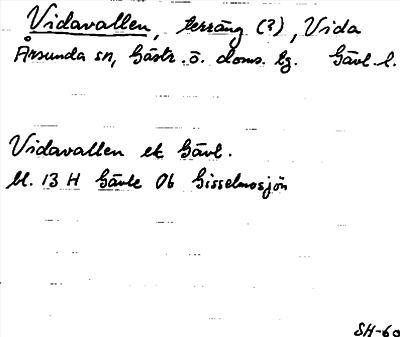 Vidavallen, terräng (?), Vida
Årsunda sn, Gästr. ö. doms. tg. Gävl. l.
Vidavallen ek Gävl.
bl. 13 H Gävle 0b Gisselmosjön
SH-60